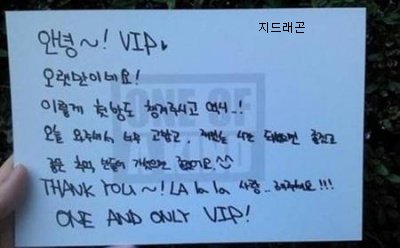 지드래곤
안녕~! VIP♥
오랫만이네요!
이렇게 첫방도 챙겨주시고 역시..!
오늘 와주셔서 너무 고맙고, 재밌는 시간 되었으면 좋겠고
좋은 추억 만들어 가셨으면 좋겠어요.^^
THANK YOU~! LA la la 사랑..해주세요!!!
ONE AND ONLY VIP!
ONE OF